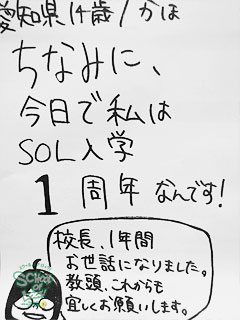 愛知県14歳/かほ
ちなみに、
今日で私は
SOL入学
1周年なんです!
校長、1年間
お世話になりました。
教頭、これからも
宜しくお願いします。